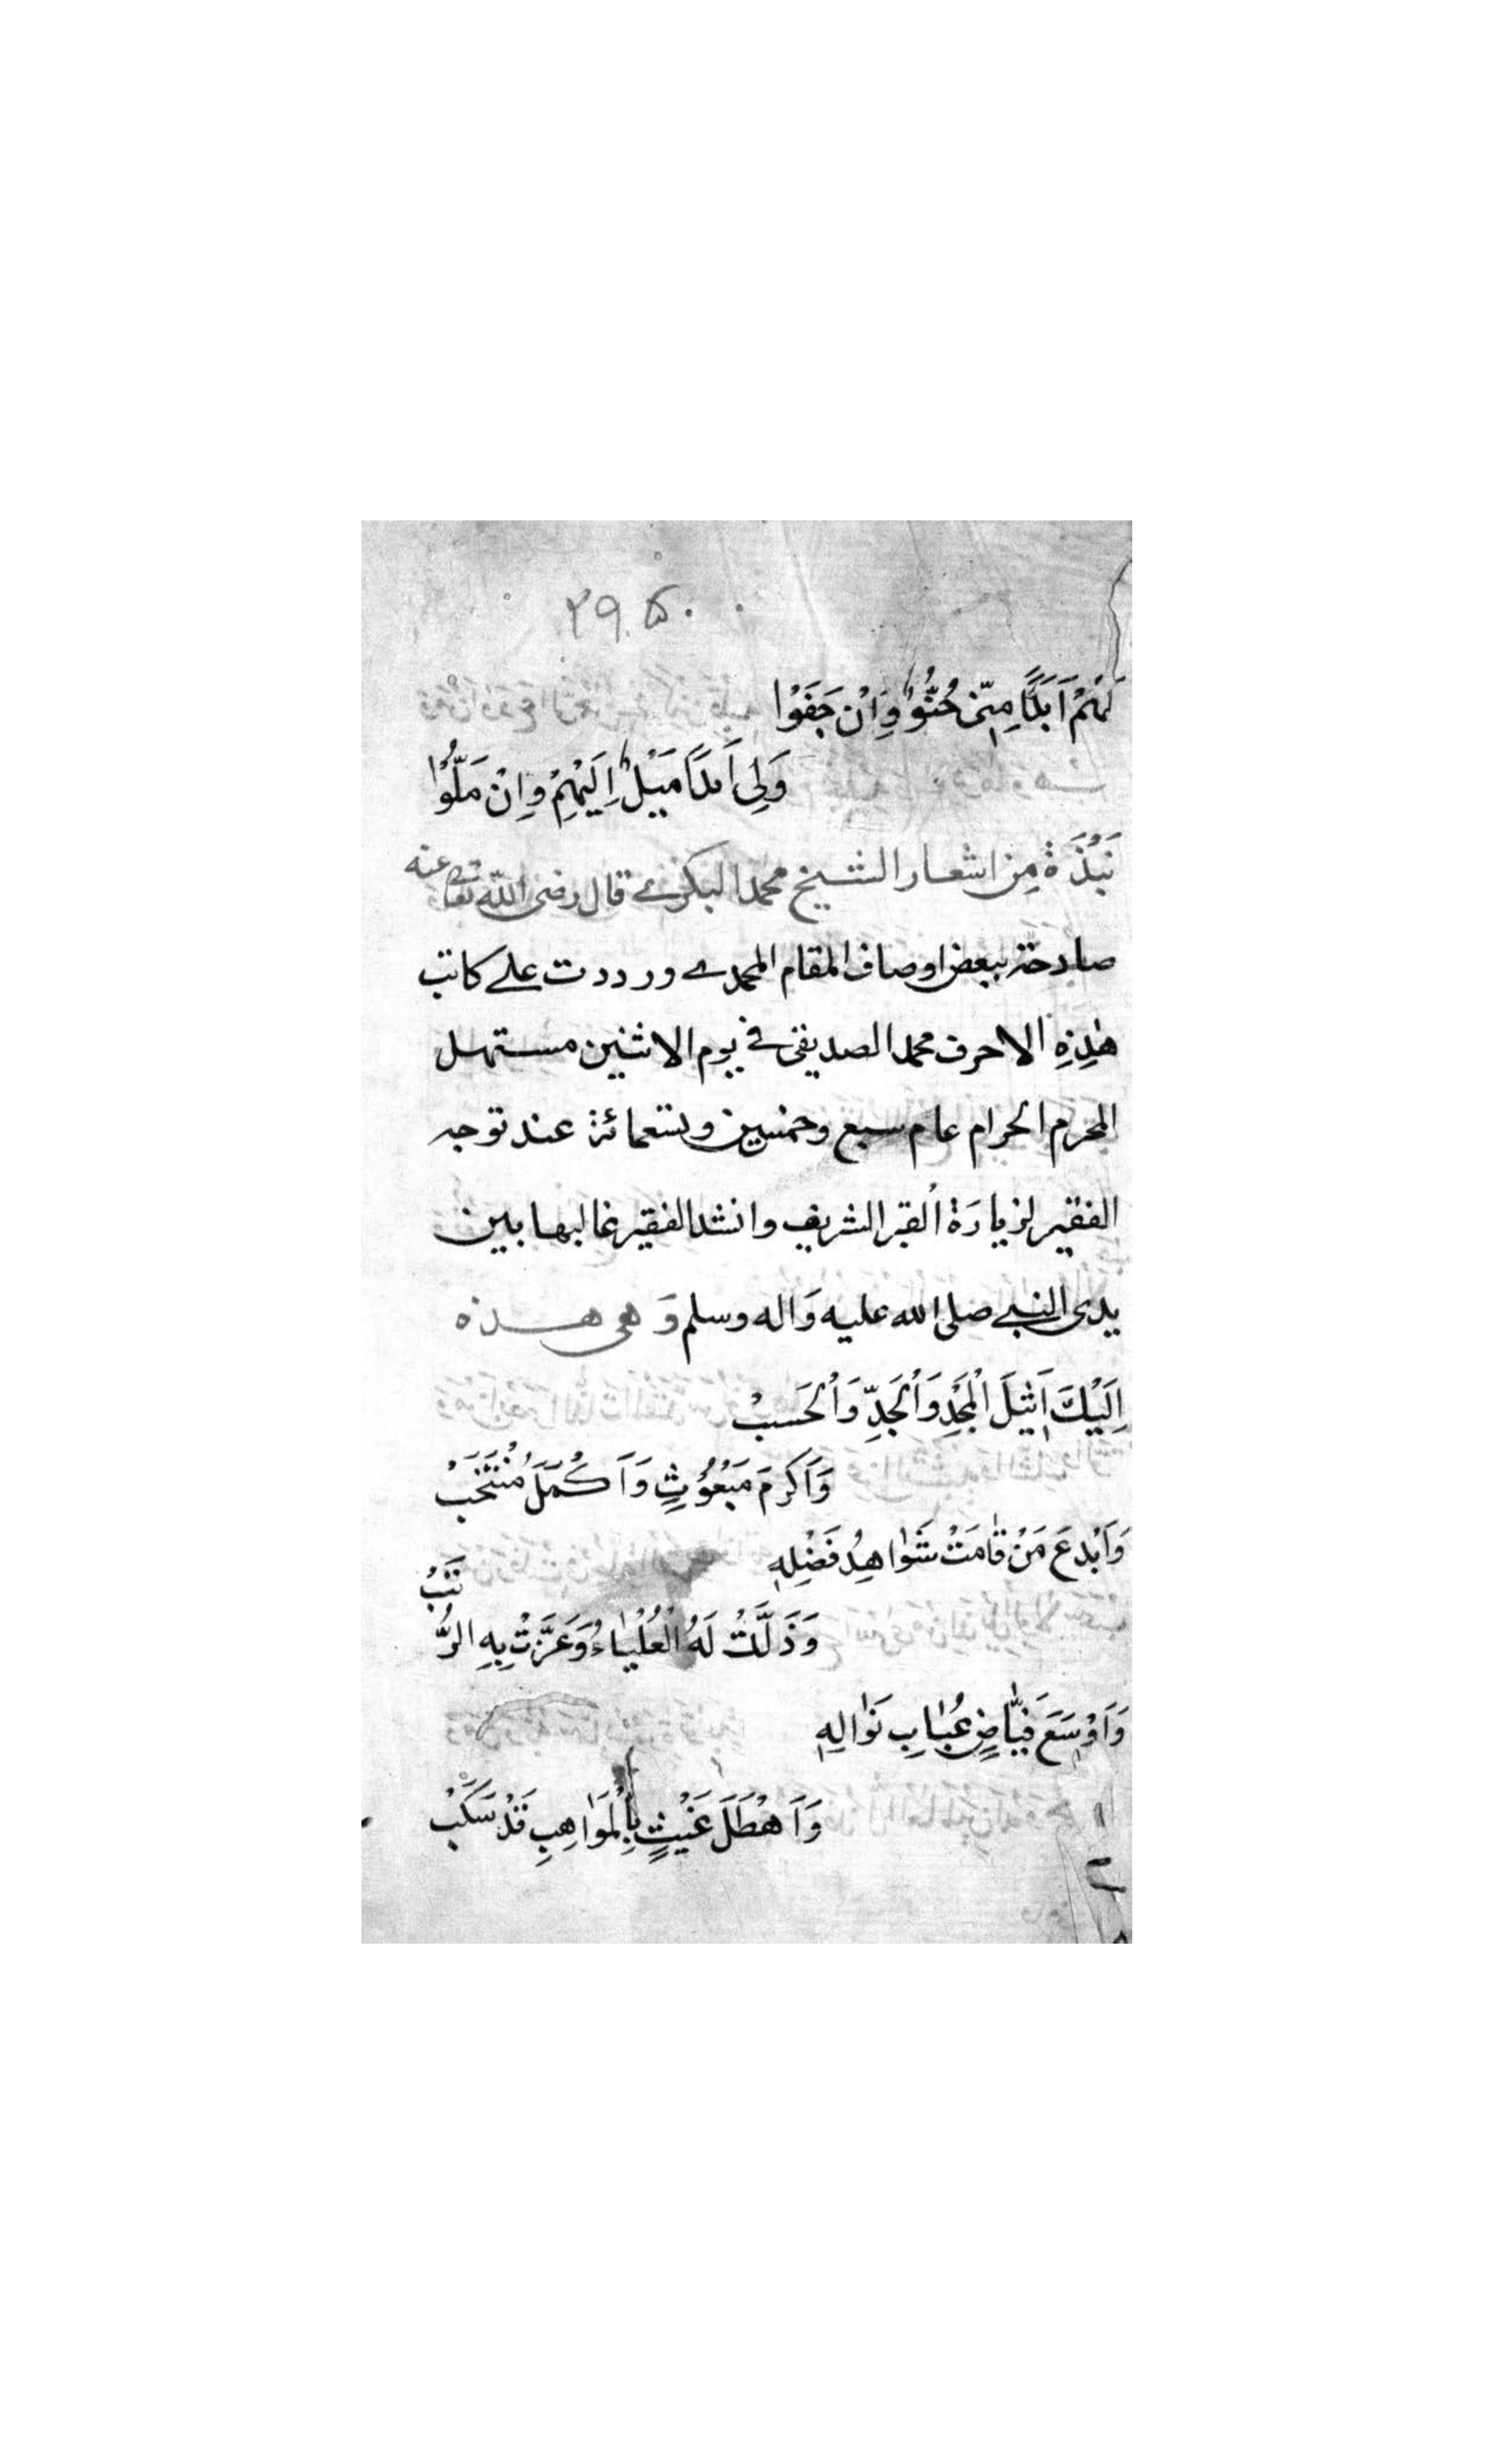 ٢٩٥٠
لَهُمْ اَبَدًا مِنِّي حُنُوٌّ وَاِنْ جَفَوْا
وَلِي اَبَدًا مَيْلٌ اِلَيْهِمْ وَاِنْ مَلُّوْا
نَبْذَةٌ مِن اشعار الشيخ محمد البكرى قال رضى الله تعالى عنه
صادحة ببعض اوصاف المقام المحمدى ورددت على كاتب
هٰذِهِ الاحرف محمد الصديقى فى يوم الاثنين مستهل
المحرم الحرام عام سبع وخمسين وتسعمائة عند توجه
الفقير لزيارَة القبر الشريف وانشد الفقير غالبها بين
يدى النبى صلى الله عليه وَاله وسلم وَهى هذه
اِلَيْكَ اَثِيلَ الْمَجْدِ وَالْجَدِّ وَالْحَسَبْ
وَاَكْرَمَ مَبْعُوْثٍ وَاَكْمَلَ مُنْتَخَبْ
وَاَبْدَعَ مَنْ قَامَتْ شَوَاهِدُ فَضْلِهِ
وَذَلَّتْ لَهُ الْعُلْيَاءُ وَعَزَّتْ بِهِ الرُّتَبْ
وَاَوْسَعَ فَيَّاضٍ عُبَابِ نَوَالِهِ
وَاَهْطَلَ غَيْثٍ بِالْمَوَاهِبِ قَدْ سَكَبْ